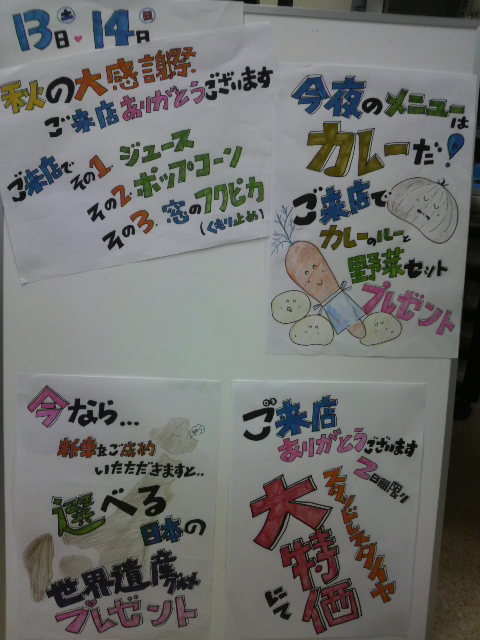 13日・14日
土
日
秋の大感謝祭
ご来店ありがとうございます
ご来店で
その1. ジュース
その2. ポップコーン
その3. 窓のフクピカ
(くもり止め)
今夜のメニューは
カレーだ!
ご来店で
カレーのルーと
野菜セット
プレゼント
今なら...
新車をご成約
いただだきますと..
選べる
日本の
世界遺産グルメ
プレゼント
ご来店
ありがとうございます
2日間限り
スタッドレスタイヤ
大特価
にて